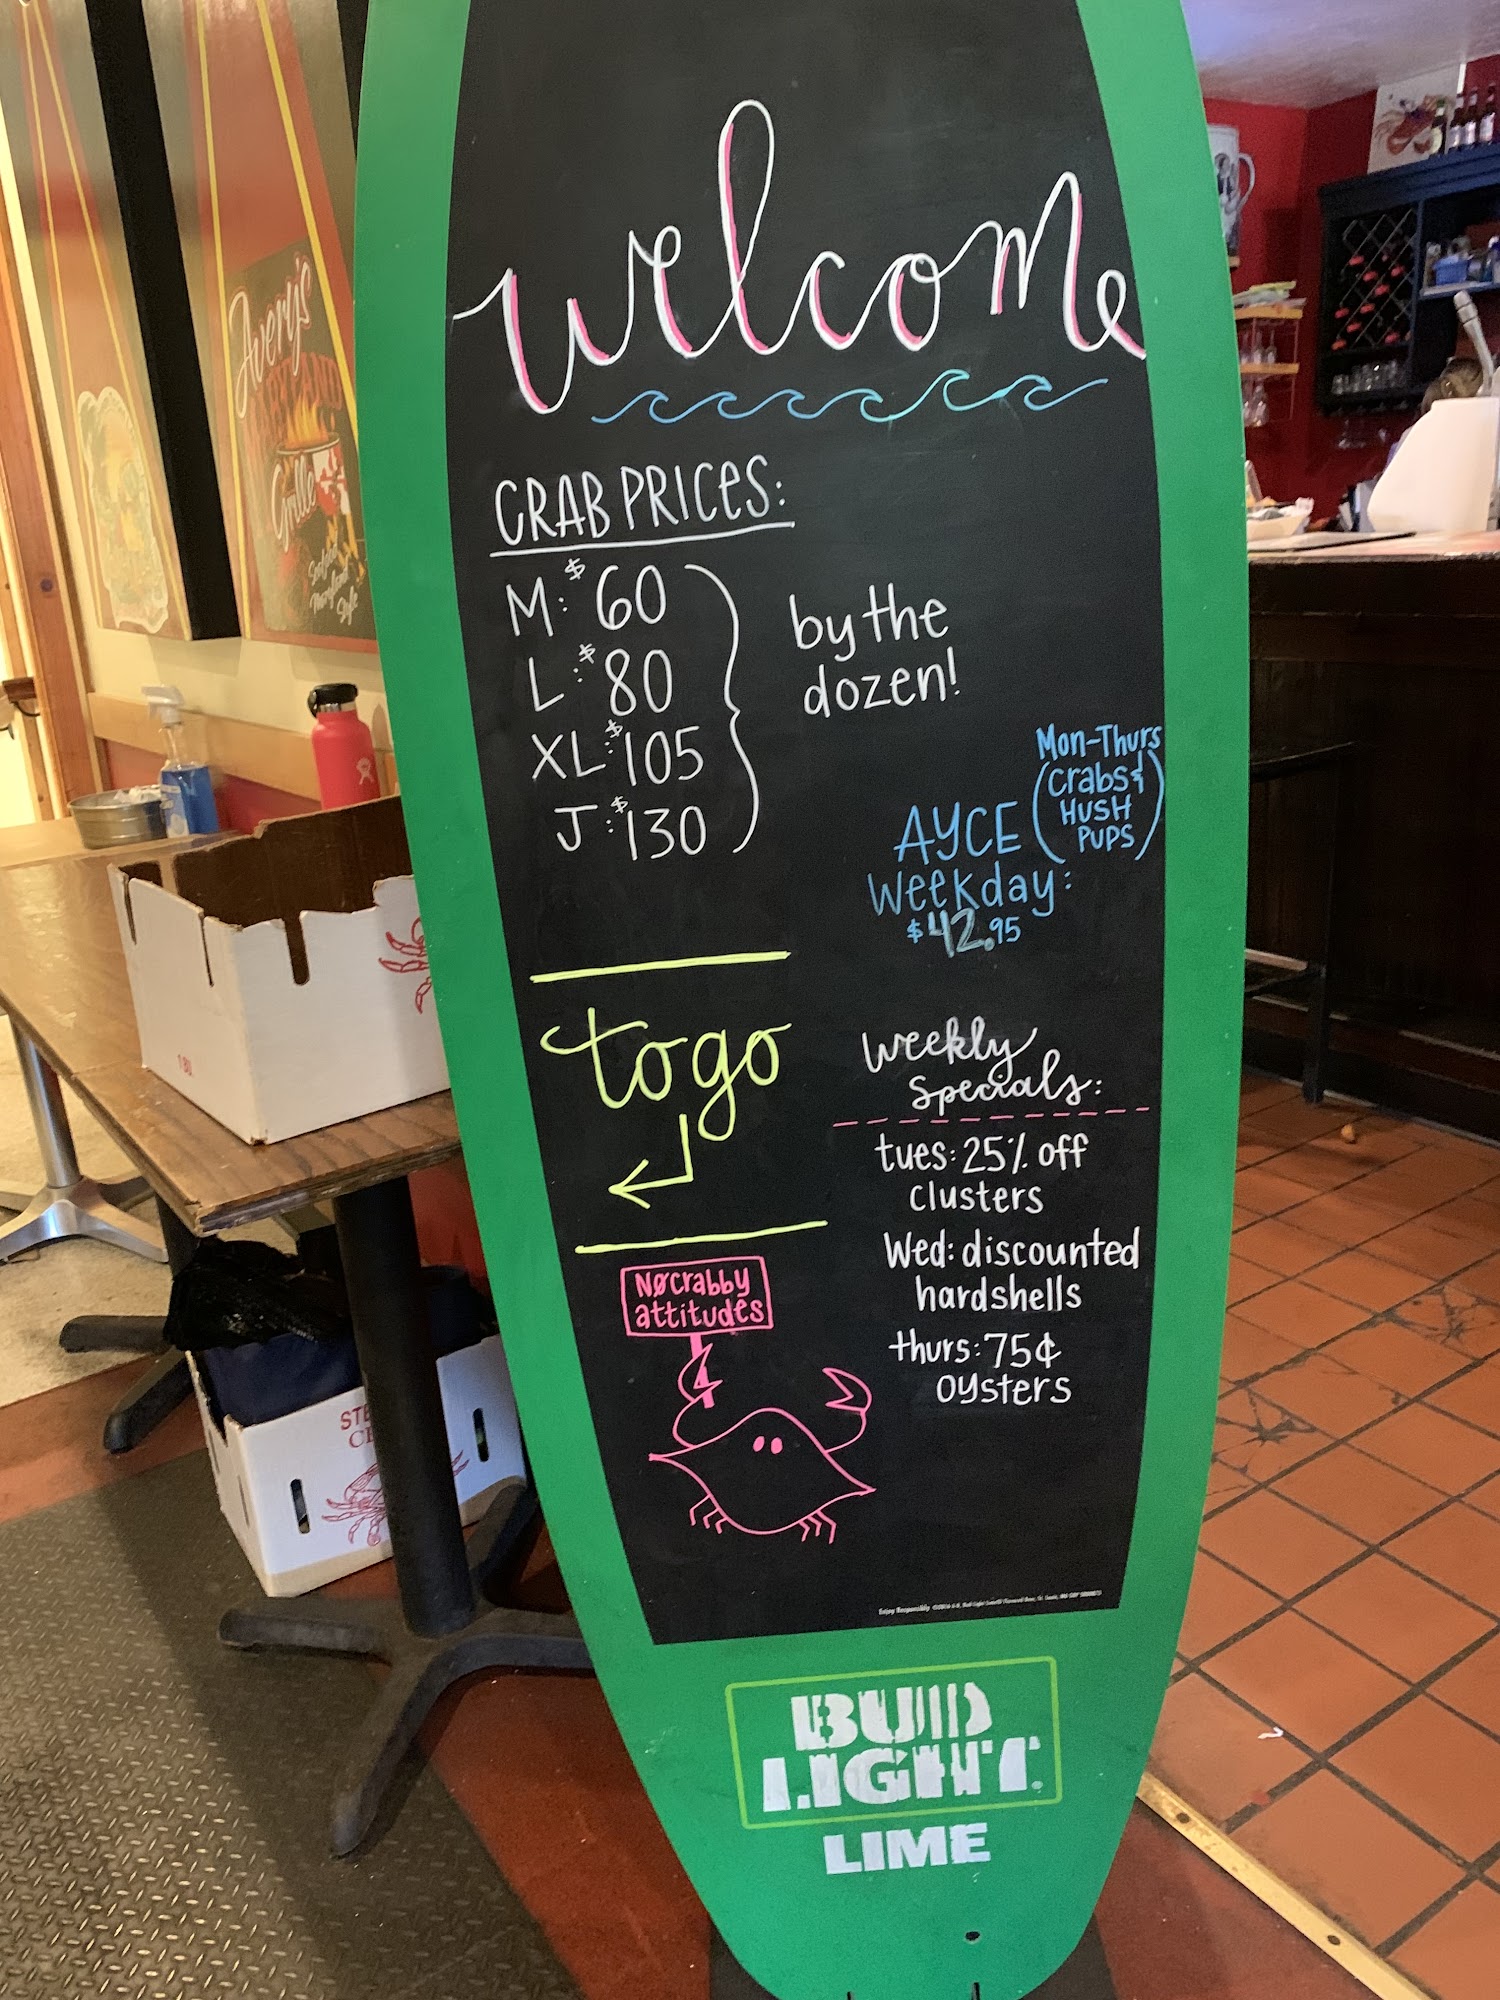 welcome
CRAB PRICES:
M: $60
L: $80
XL: $105
J: $130
by the
dozen!
Mon-Thurs
AYCE (Crabs &
HUSH
PUPS)
Weekday:
$42.95
to go
Weekly
Specials:
tues: 25% off
clusters
Wed: discounted
hardshells
thurs: 75¢
oysters
NØ crabby
attitudes
Enjoy Responsibly
BUD
LIGHT
LIME
Avery's
MARYLAND
Grille
Seafood
Maryland
Style
180